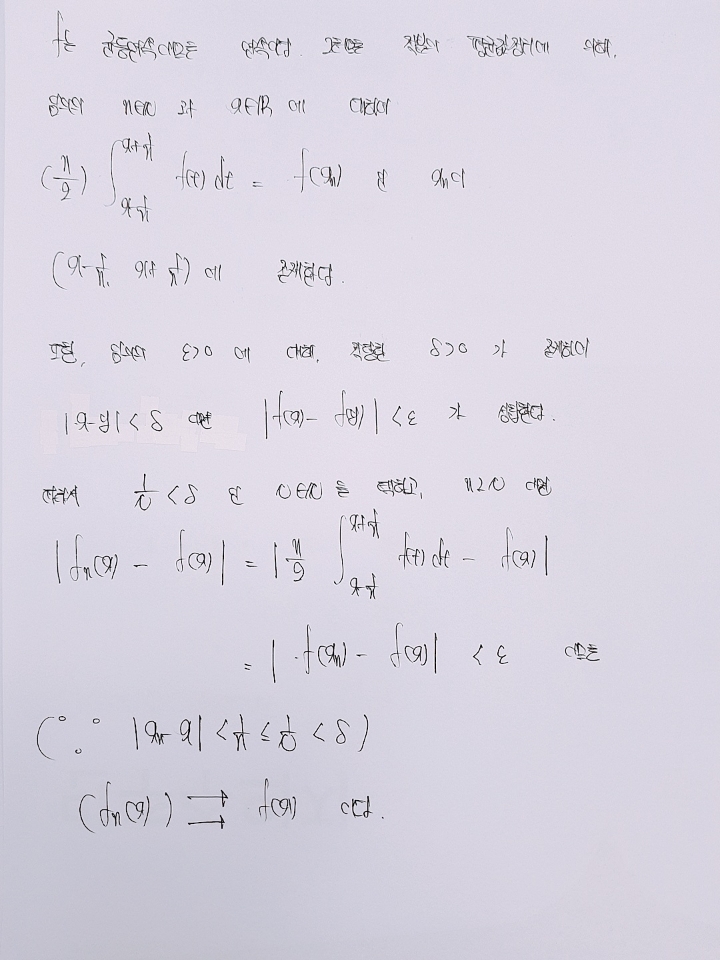 f는 균등연속이므로 연속이다. 그러므로 적분의 평균값정리에 의해,
임의의 n∈N 과 x∈R 에 대하여
(n/2) ∫_{x-1/n}^{x+1/n} f(t) dt = f(xₙ) 인 xₙ이
(x-1/n, x+1/n) 에 존재한다.
또한, 임의의 ε>0 에 대해, 적당한 δ>0 가 존재하여
|x-y| < δ 이면 |f(x) - f(y)| < ε 가 성립한다.
따라서 1/N < δ 인 N∈N 을 택하고, n≥N 이면
|fₙ(x) - f(x)| = |n/2 ∫_{x-1/n}^{x+1/n} f(t) dt - f(x)|
= |f(xₙ) - f(x)| < ε 이므로
(∵ |xₙ-x| < 1/n ≤ 1/N < δ)
(fₙ(x)) ⇉ f(x) 이다.